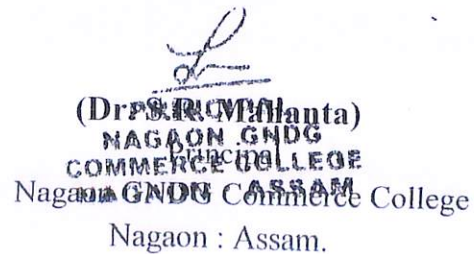 (Dr. S.R. Mahanta)
Principal
NAGAON GNDG
COMMERCE COLLEGE
ASSAM
Nagaon GNDG Commerce College
Nagaon : Assam.